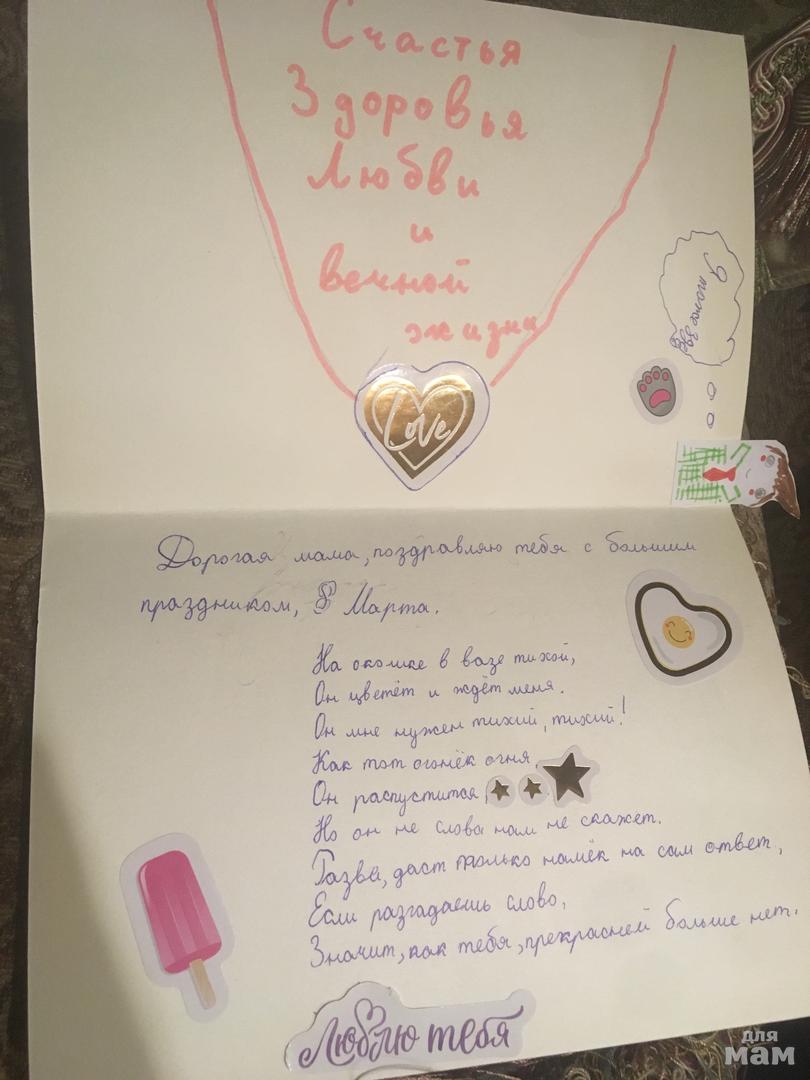 Счастья
Здоровья
Любви
и
вечной
жизни
Love
Я тоже
Дорогая мама, поздравляю тебя с большим
праздником, 8 Марта.
На окошке в вазе тихой,
Он цветёт и ждёт меня.
Он мне нужен тихий, тихий!
Как тот огонёк огня,
Он распустится,
Но он не слова нам не скажет.
Разве, даст только намёк на сам ответ,
Если разгадаешь слово,
Значит, как тебя, прекрасней больше нет.
Люблю тебя
для
мам